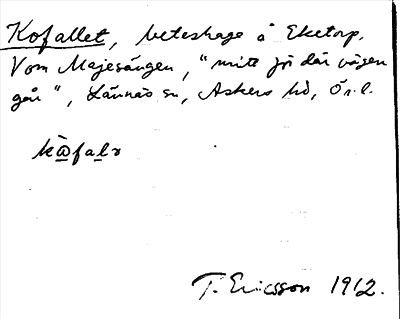 Kofallet, beteshage å Eketorp.
Vom Majesängen, "mitt för där vägen
går", Lännäs sn, Askers hd, Ör. l.
T. Ericsson 1912.